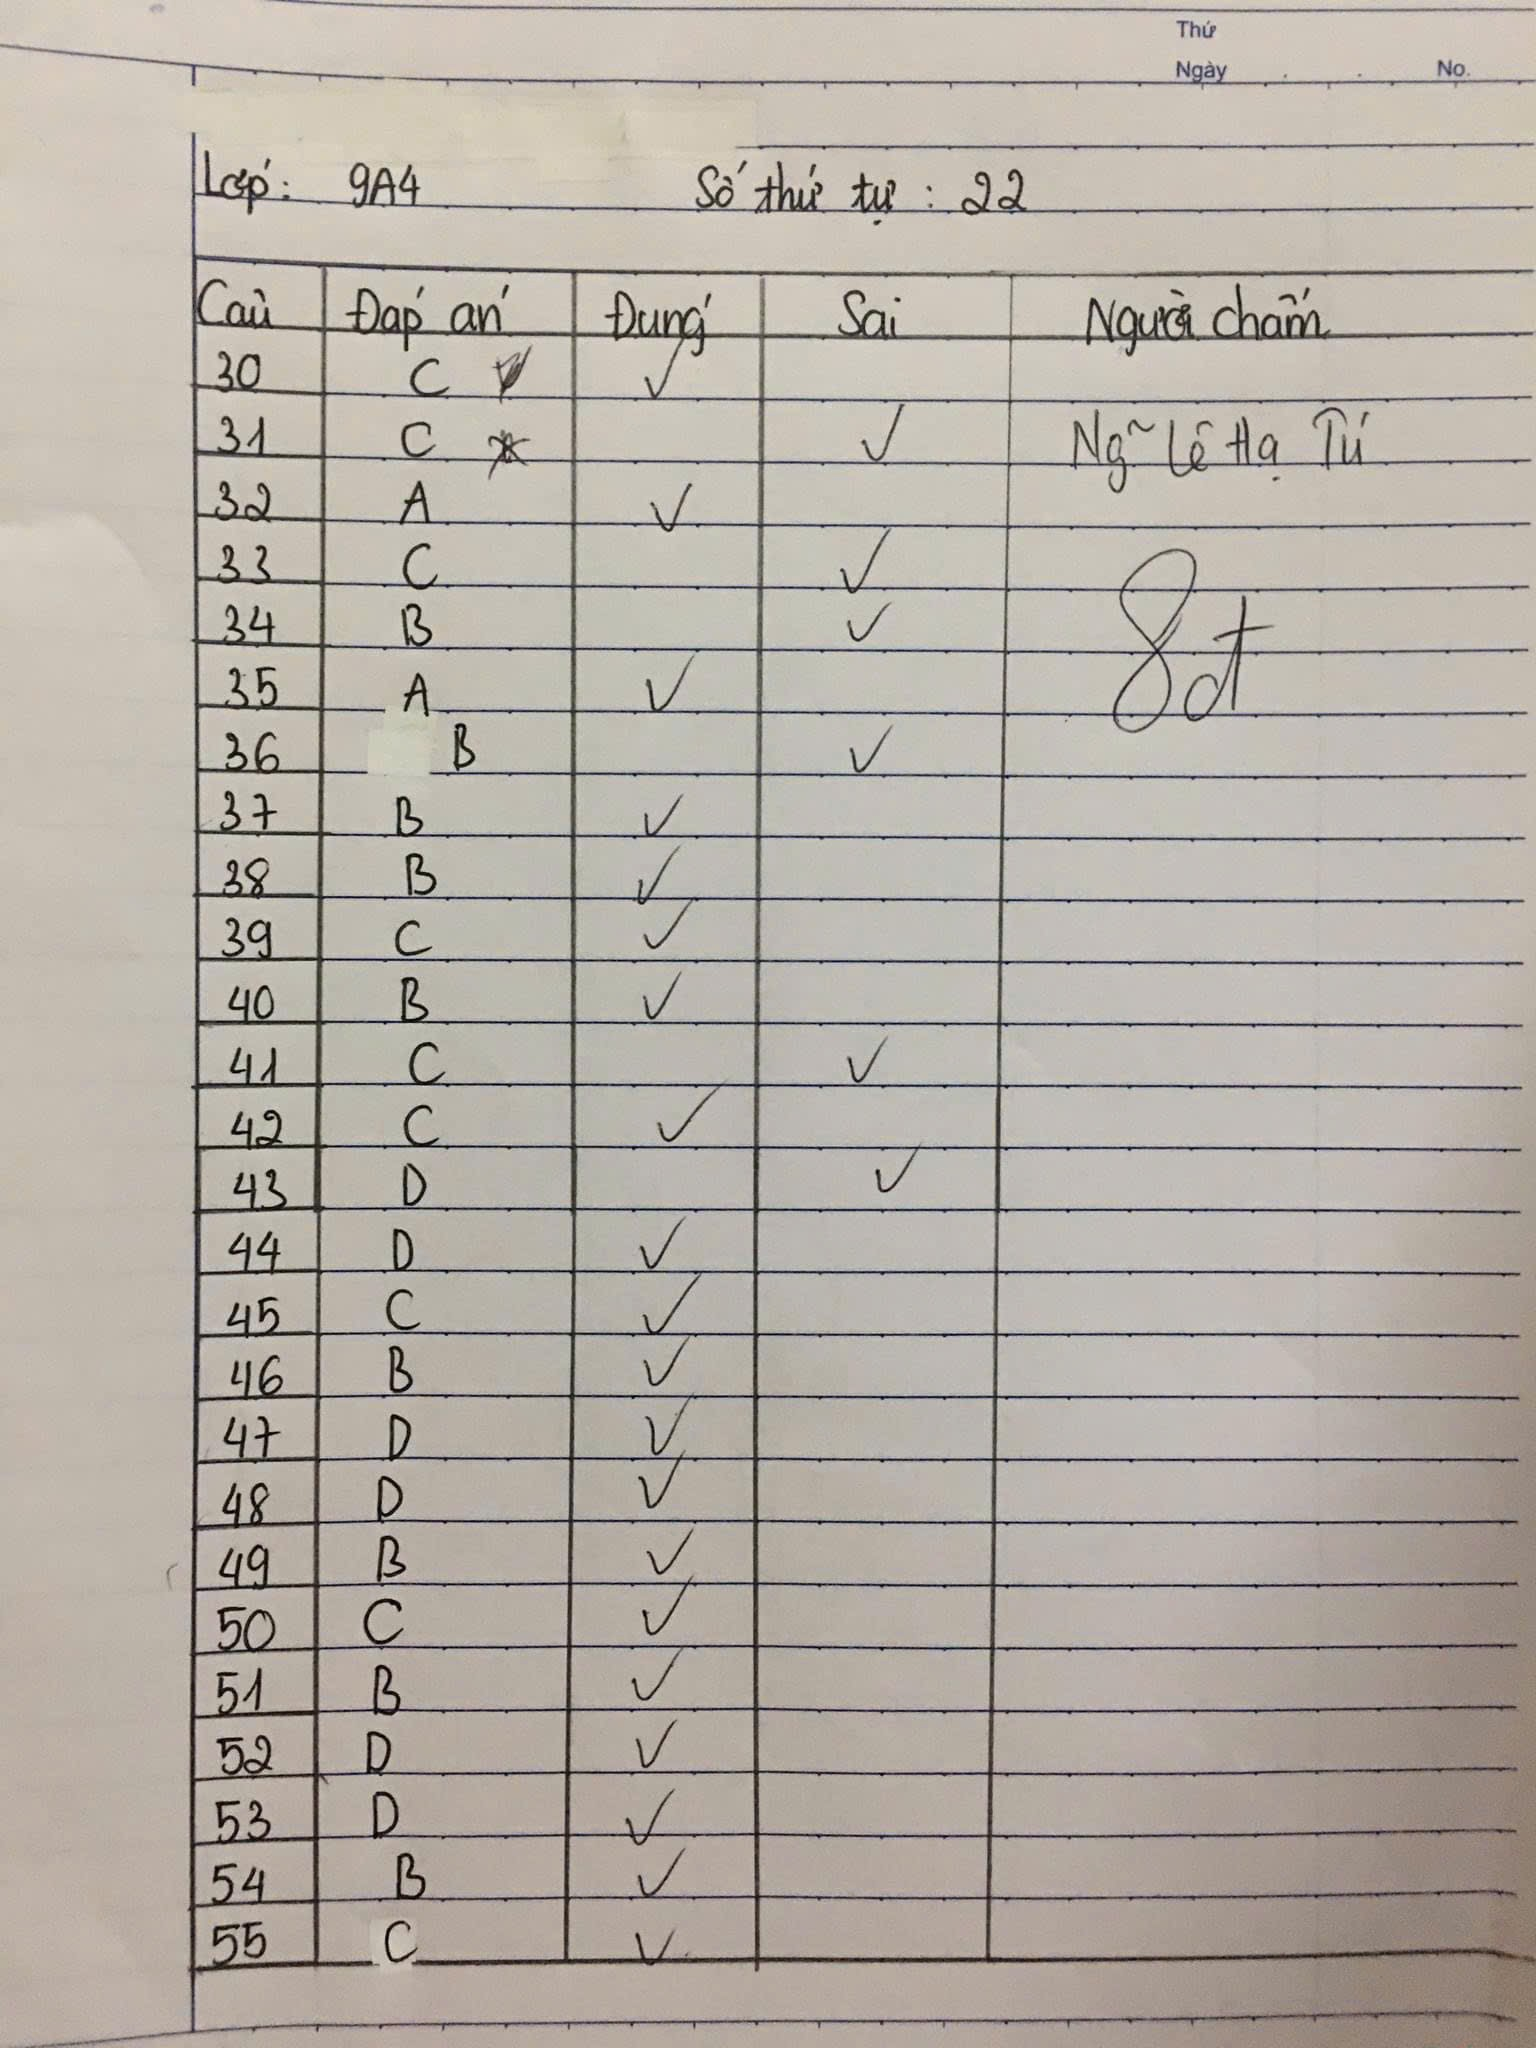 Thứ
Ngày No.
Lớp: 9A4 Số thứ tự : 22
Câu Đáp án Đúng Sai Người chấm
30 C ✓
31 C ✓ Ngũ Lê Hạ Tú
32 A ✓
33 C ✓
34 B ✓
8đ
35 A ✓
36 B ✓
37 B ✓
38 B ✓
39 C ✓
40 B ✓
41 C ✓
42 C ✓
43 D ✓
44 D ✓
45 C ✓
46 B ✓
47 D ✓
48 D ✓
49 B ✓
50 C ✓
51 B ✓
52 D ✓
53 D ✓
54 B ✓
55 C ✓